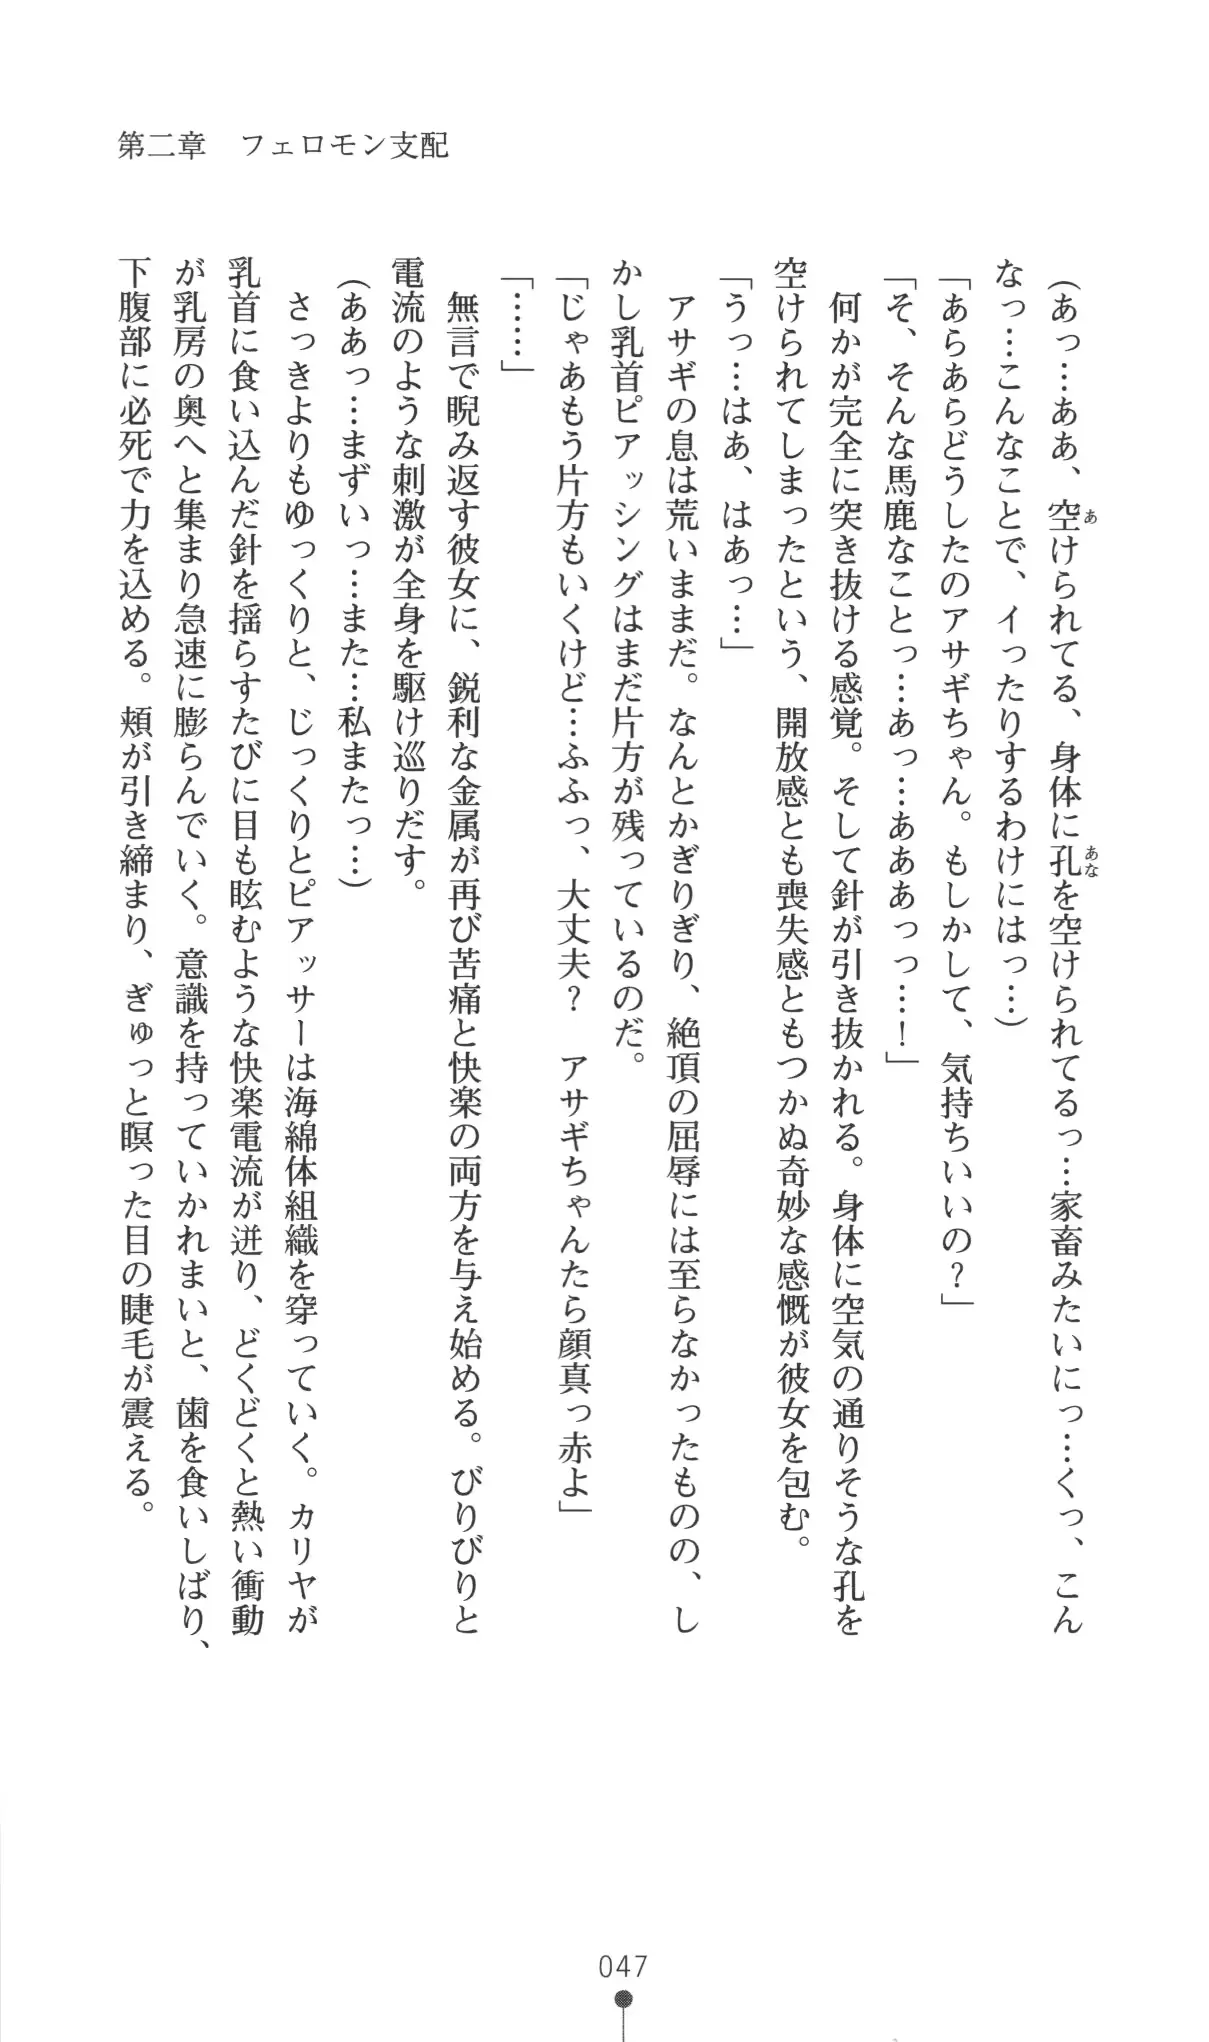 第二章　フェロモン支配
(あっ…ああ、空けられてる、身体に孔を空けられてるっ…家畜みたいにっ…くっ、こん
なっ…こんなことで、イったりするわけにはっ…)
「あらあらどうしたのアサギちゃん。もしかして、気持ちいいの？」
「そ、そんな馬鹿なことっ…あっ…あああっっ…！」
　何かが完全に突き抜ける感覚。そして針が引き抜かれる。身体に空気の通りそうな孔を
空けられてしまったという、開放感とも喪失感ともつかぬ奇妙な感慨が彼女を包む。
「うっ…はあ、はあっ…」
　アサギの息は荒いままだ。なんとかぎりぎり、絶頂の屈辱には至らなかったものの、し
かし乳首ピアッシングはまだ片方が残っているのだ。
「じゃあもう片方もいくけど…ふふっ、大丈夫？　アサギちゃんたら顔真っ赤よ」
「……」
　無言で睨み返す彼女に、鋭利な金属が再び苦痛と快楽の両方を与え始める。びりびりと
電流のような刺激が全身を駆け巡りだす。
(ああっ…まずいっ…また…私またっ…)
　さっきよりもゆっくりと、じっくりとピアッサーは海綿体組織を穿っていく。カリヤが
乳首に食い込んだ針を揺らすたびに目も眩むような快楽電流が迸り、どくどくと熱い衝動
が乳房の奥へと集まり急速に膨らんでいく。意識を持っていかれまいと、歯を食いしばり、
下腹部に必死で力を込める。頬が引き締まり、ぎゅっと瞑った目の睫毛が震える。
047